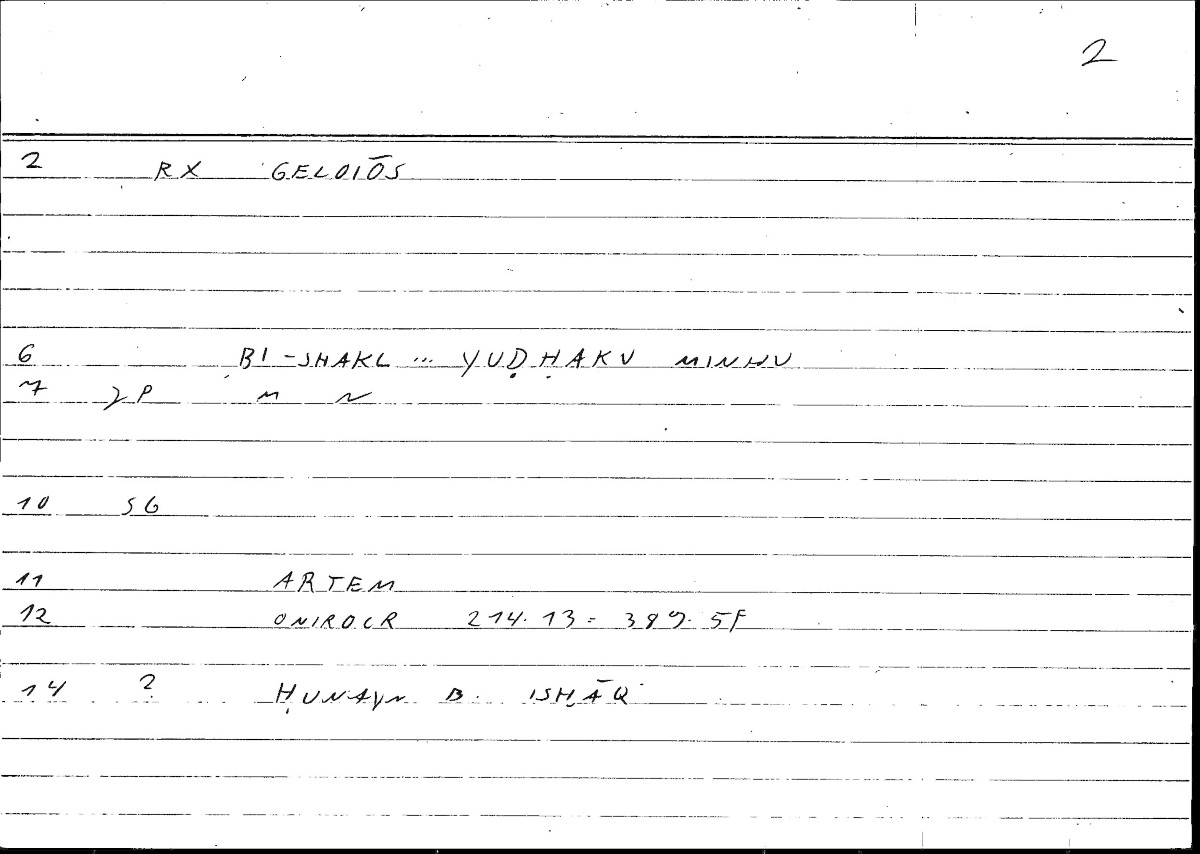 2
2 RX GELOIŌS
6 BI-SHAKL ... YUḌḤAKU MINHU
7 P M N
10 SG
11 ARTEM
12 ONIROCR 214.13 = 389.5F
14 2 ḤUNAYN B. ISḤĀQ